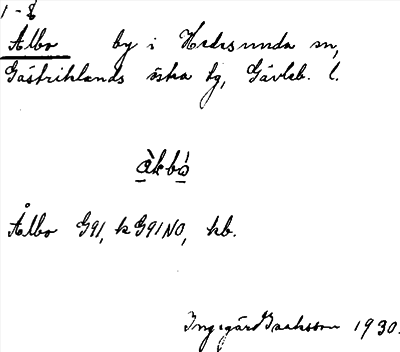 1-2
Ålbo by i Hedesunda sn,
Gästriklands östra tg, Gävleb. l.
àkbó
Ålbo G91, k G91NO, kb.
Ingegärd 1930.